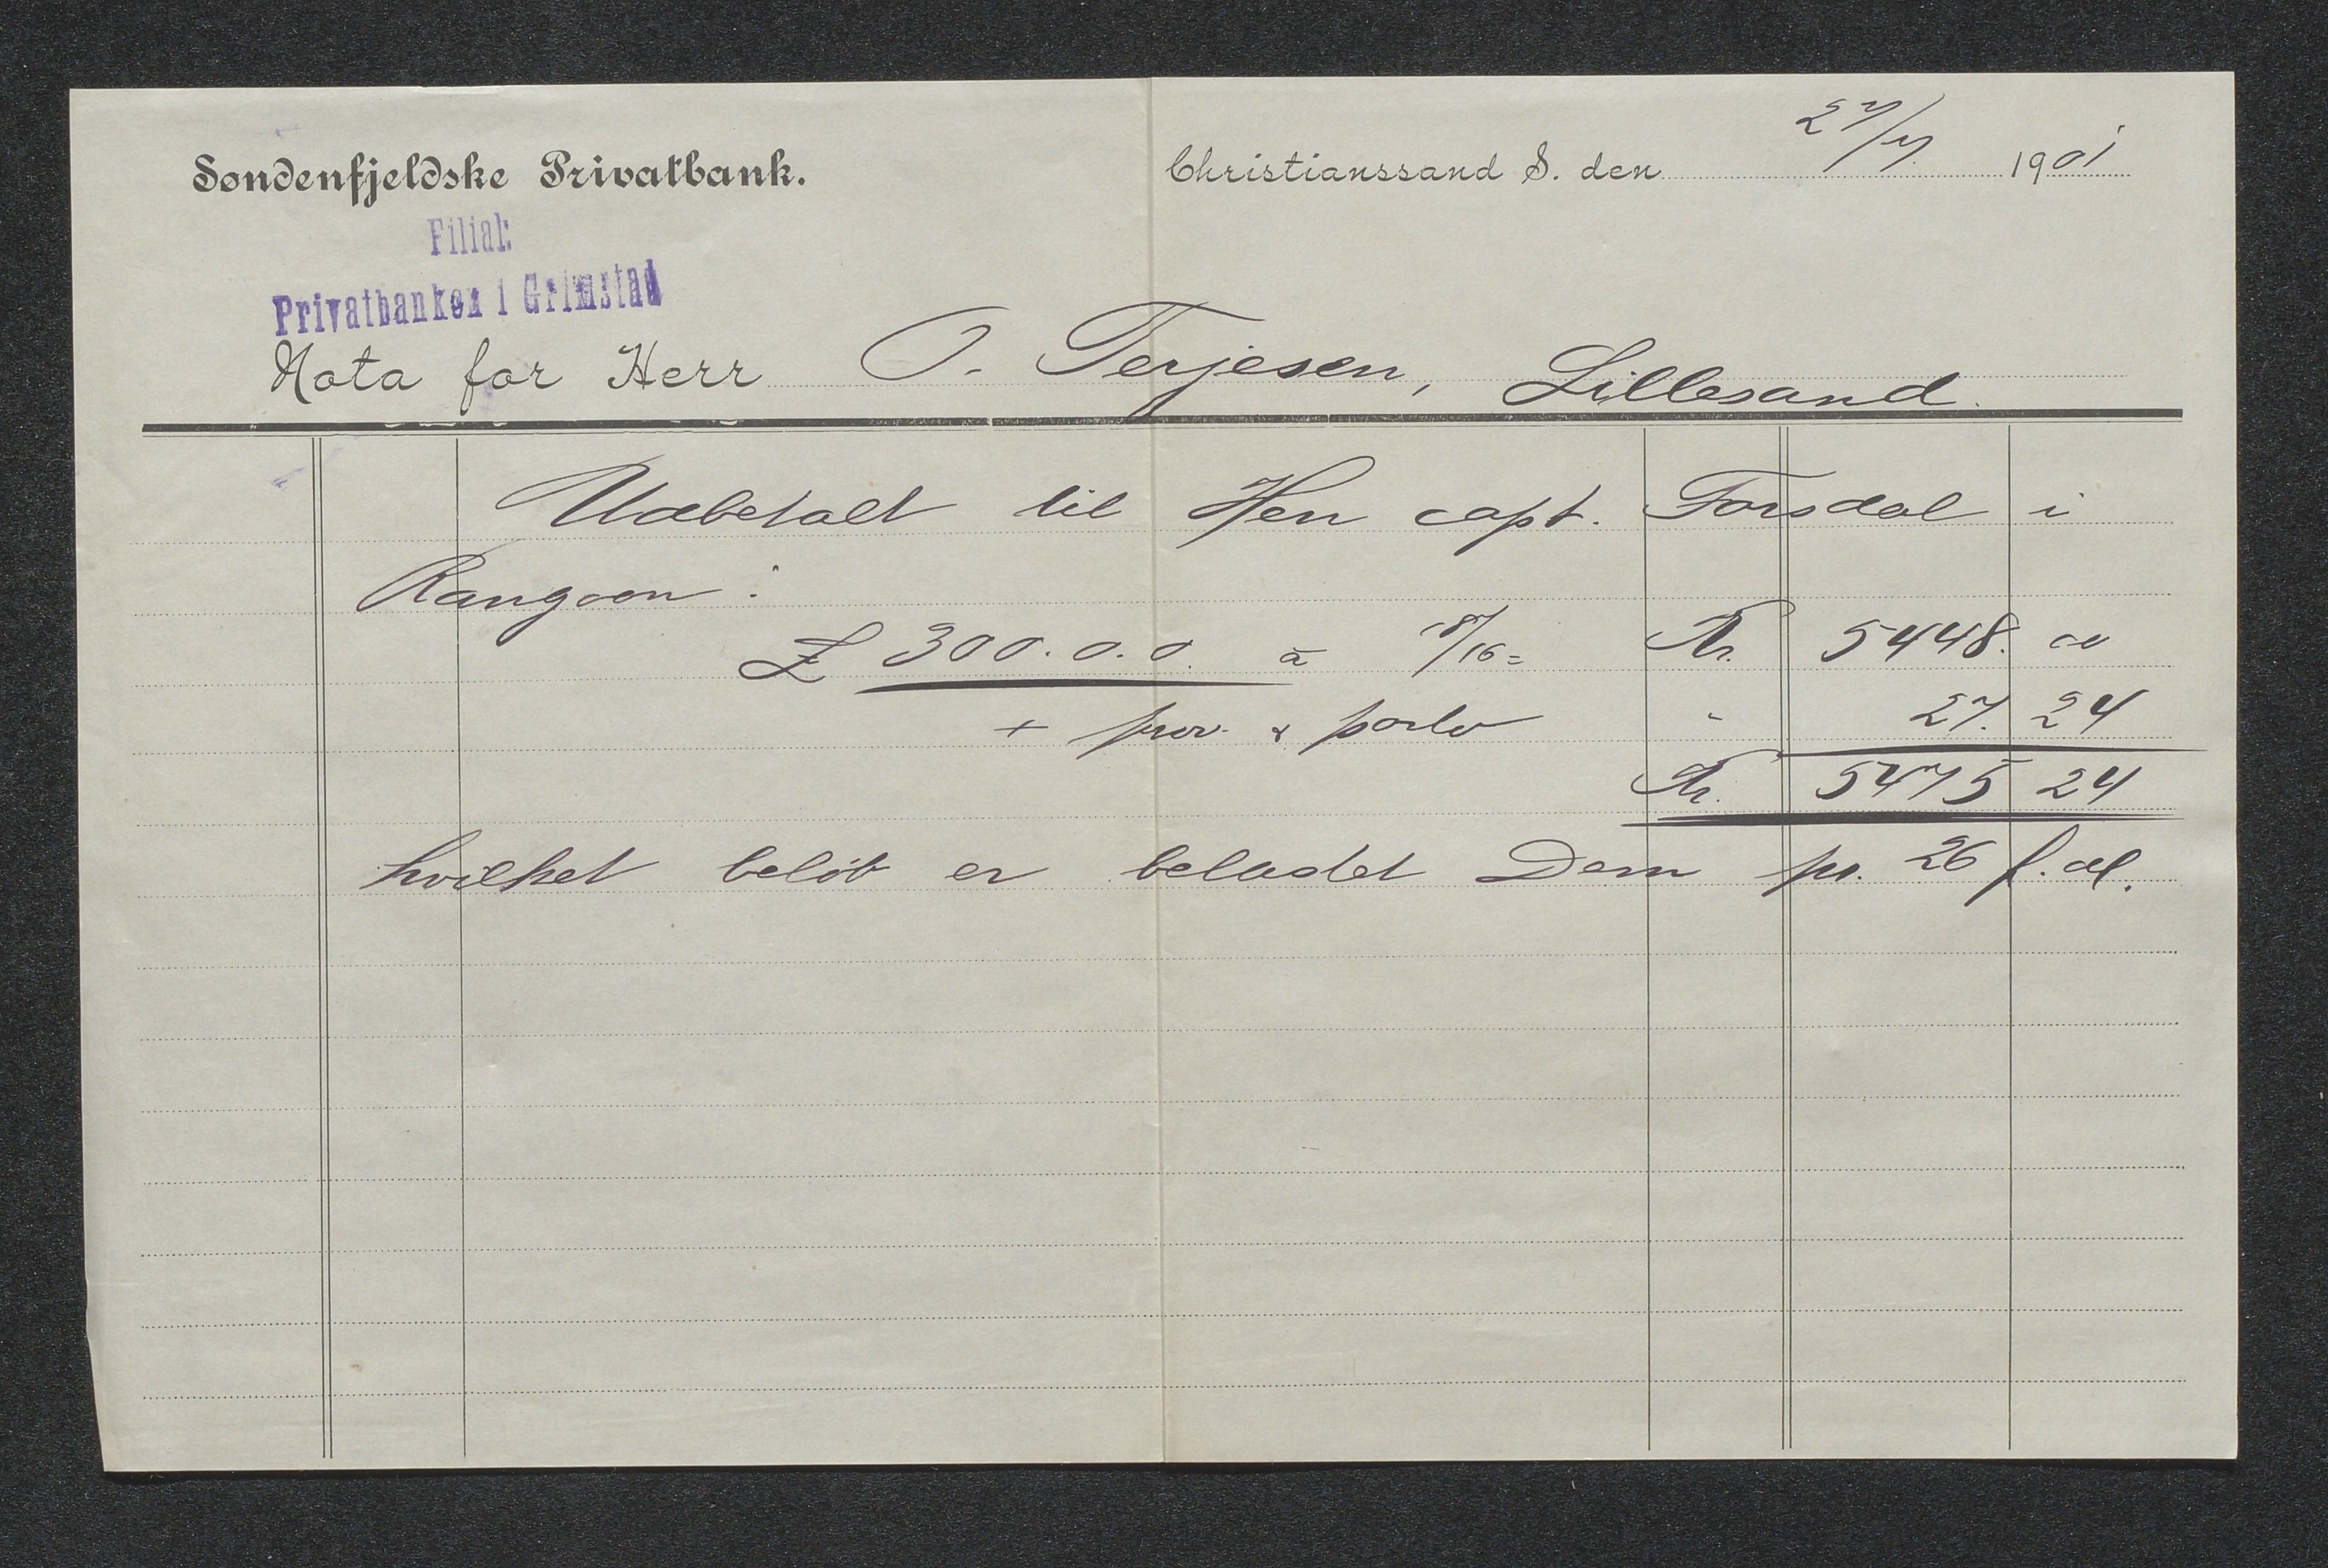 Søndenfjeldske Privatbank.
Christianssand S. den 27/7 1901
Filial:
Privatbanken i Grimstad
Nota for Herr O. Terjesen, Lillesand.
Udbetalt til Herr capt. Torsdal i
Rangoon:
£ 300.0.0 à 18/16 = Kr. 5448. 00
+ prov. & porto " 27. 24
Kr. 5475 24
hvilket beløb er belastet Dem pr. 26 f. al.